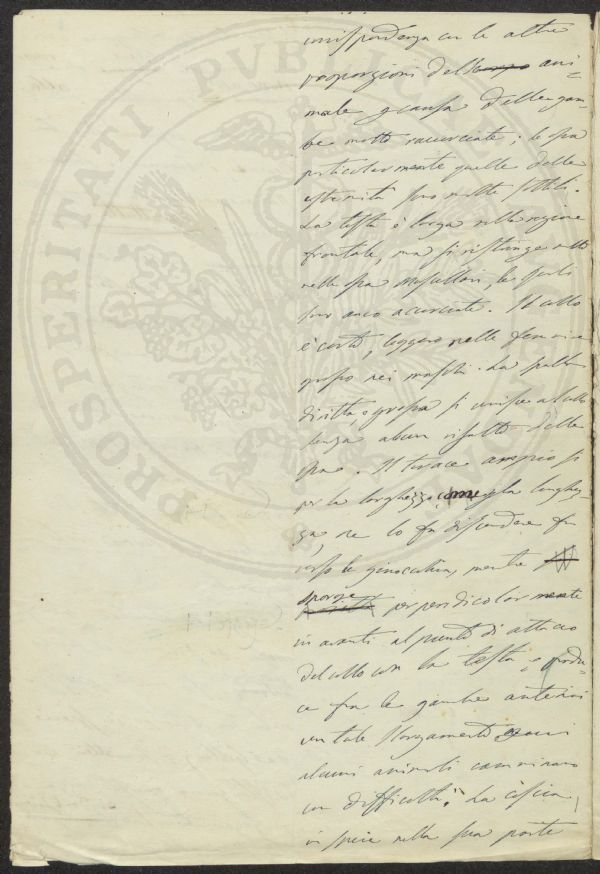 corrispondenza con le altre
proporzioni del corpo ani-
male a causa delle gam-
be molto raccorciate; le ossa
particolarmente quelle delle
estremità sono molto sottili.
La testa è larga nella regione
frontale, ma si ristringe molto
nelle ossa mascellari, le quali
sono anco accorciate. Il collo
è corto, leggero nelle femmine
grosso nei maschi. La spalla
diritta, e grossa si unisce al collo
senza alcun risalto delle
ossa. Il torace ampio sì
per la larghezza, come per la lunghez-
za, se lo fa discendere fin
verso le ginocchia, mentre
sporge perpendicolarmente
in avanti al punto di attacco
del collo con la testa, e produ-
ce fra le gambe anteriori
un tale slargamento
alcuni animali camminano
con difficoltà. La coscia,
in specie nella sua parte
PROSPERITATI PUBLICAE